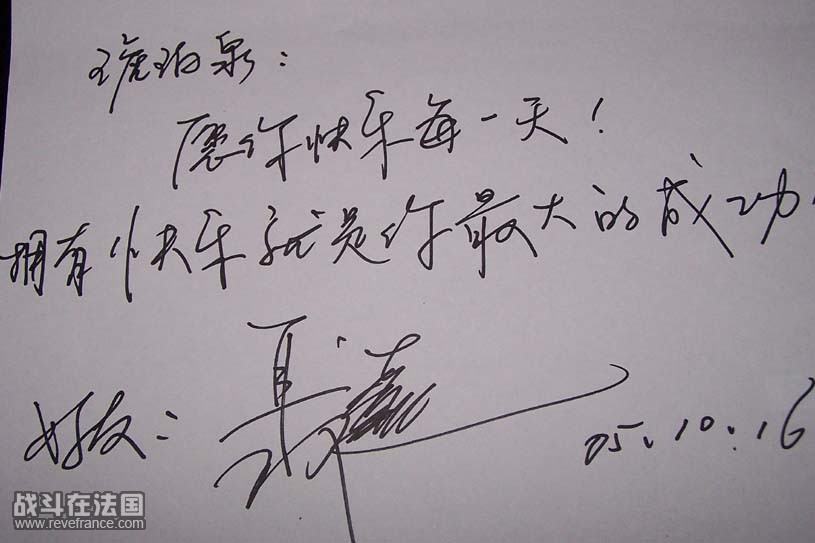 琥珀泉：
愿你快乐每一天！
拥有快乐就是你最大的成功.
好友：
05.10.16
战斗在法国
www.revefrance.com